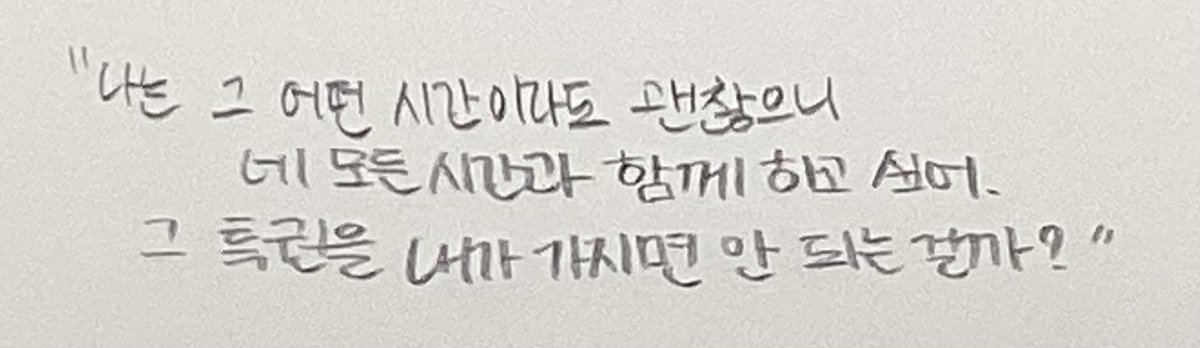 "나는 그 어떤 시간이라도 괜찮으니
네 모든 시간과 함께 하고 싶어.
그 특권을 내가 가지면 안 되는 걸까?"